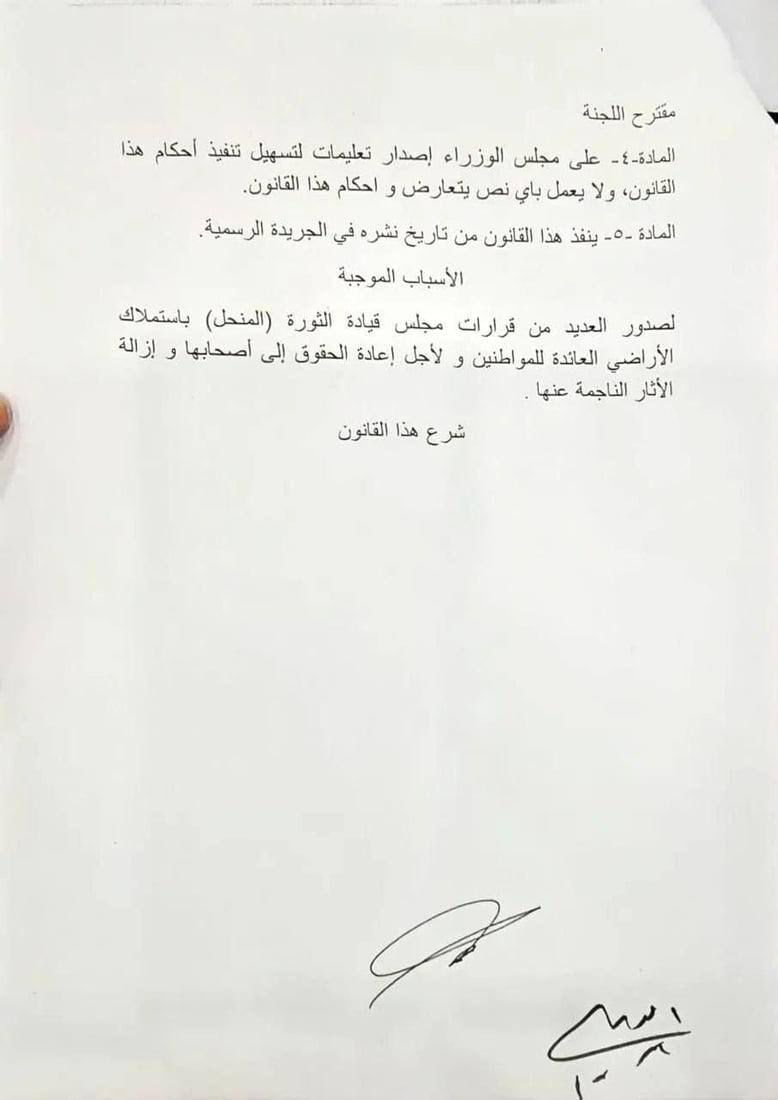 مقترح اللجنة
المادة-٤- على مجلس الوزراء إصدار تعليمات لتسهيل تنفيذ أحكام هذا
القانون، ولا يعمل باي نص يتعارض و احكام هذا القانون.
المادة -٥- ينفذ هذا القانون من تاريخ نشره في الجريدة الرسمية.
الأسباب الموجبة
لصدور العديد من قرارات مجلس قيادة الثورة (المنحل) باستملاك
الأراضي العائدة للمواطنين و لأجل إعادة الحقوق إلى أصحابها و إزالة
الأثار الناجمة عنها .
شرع هذا القانون